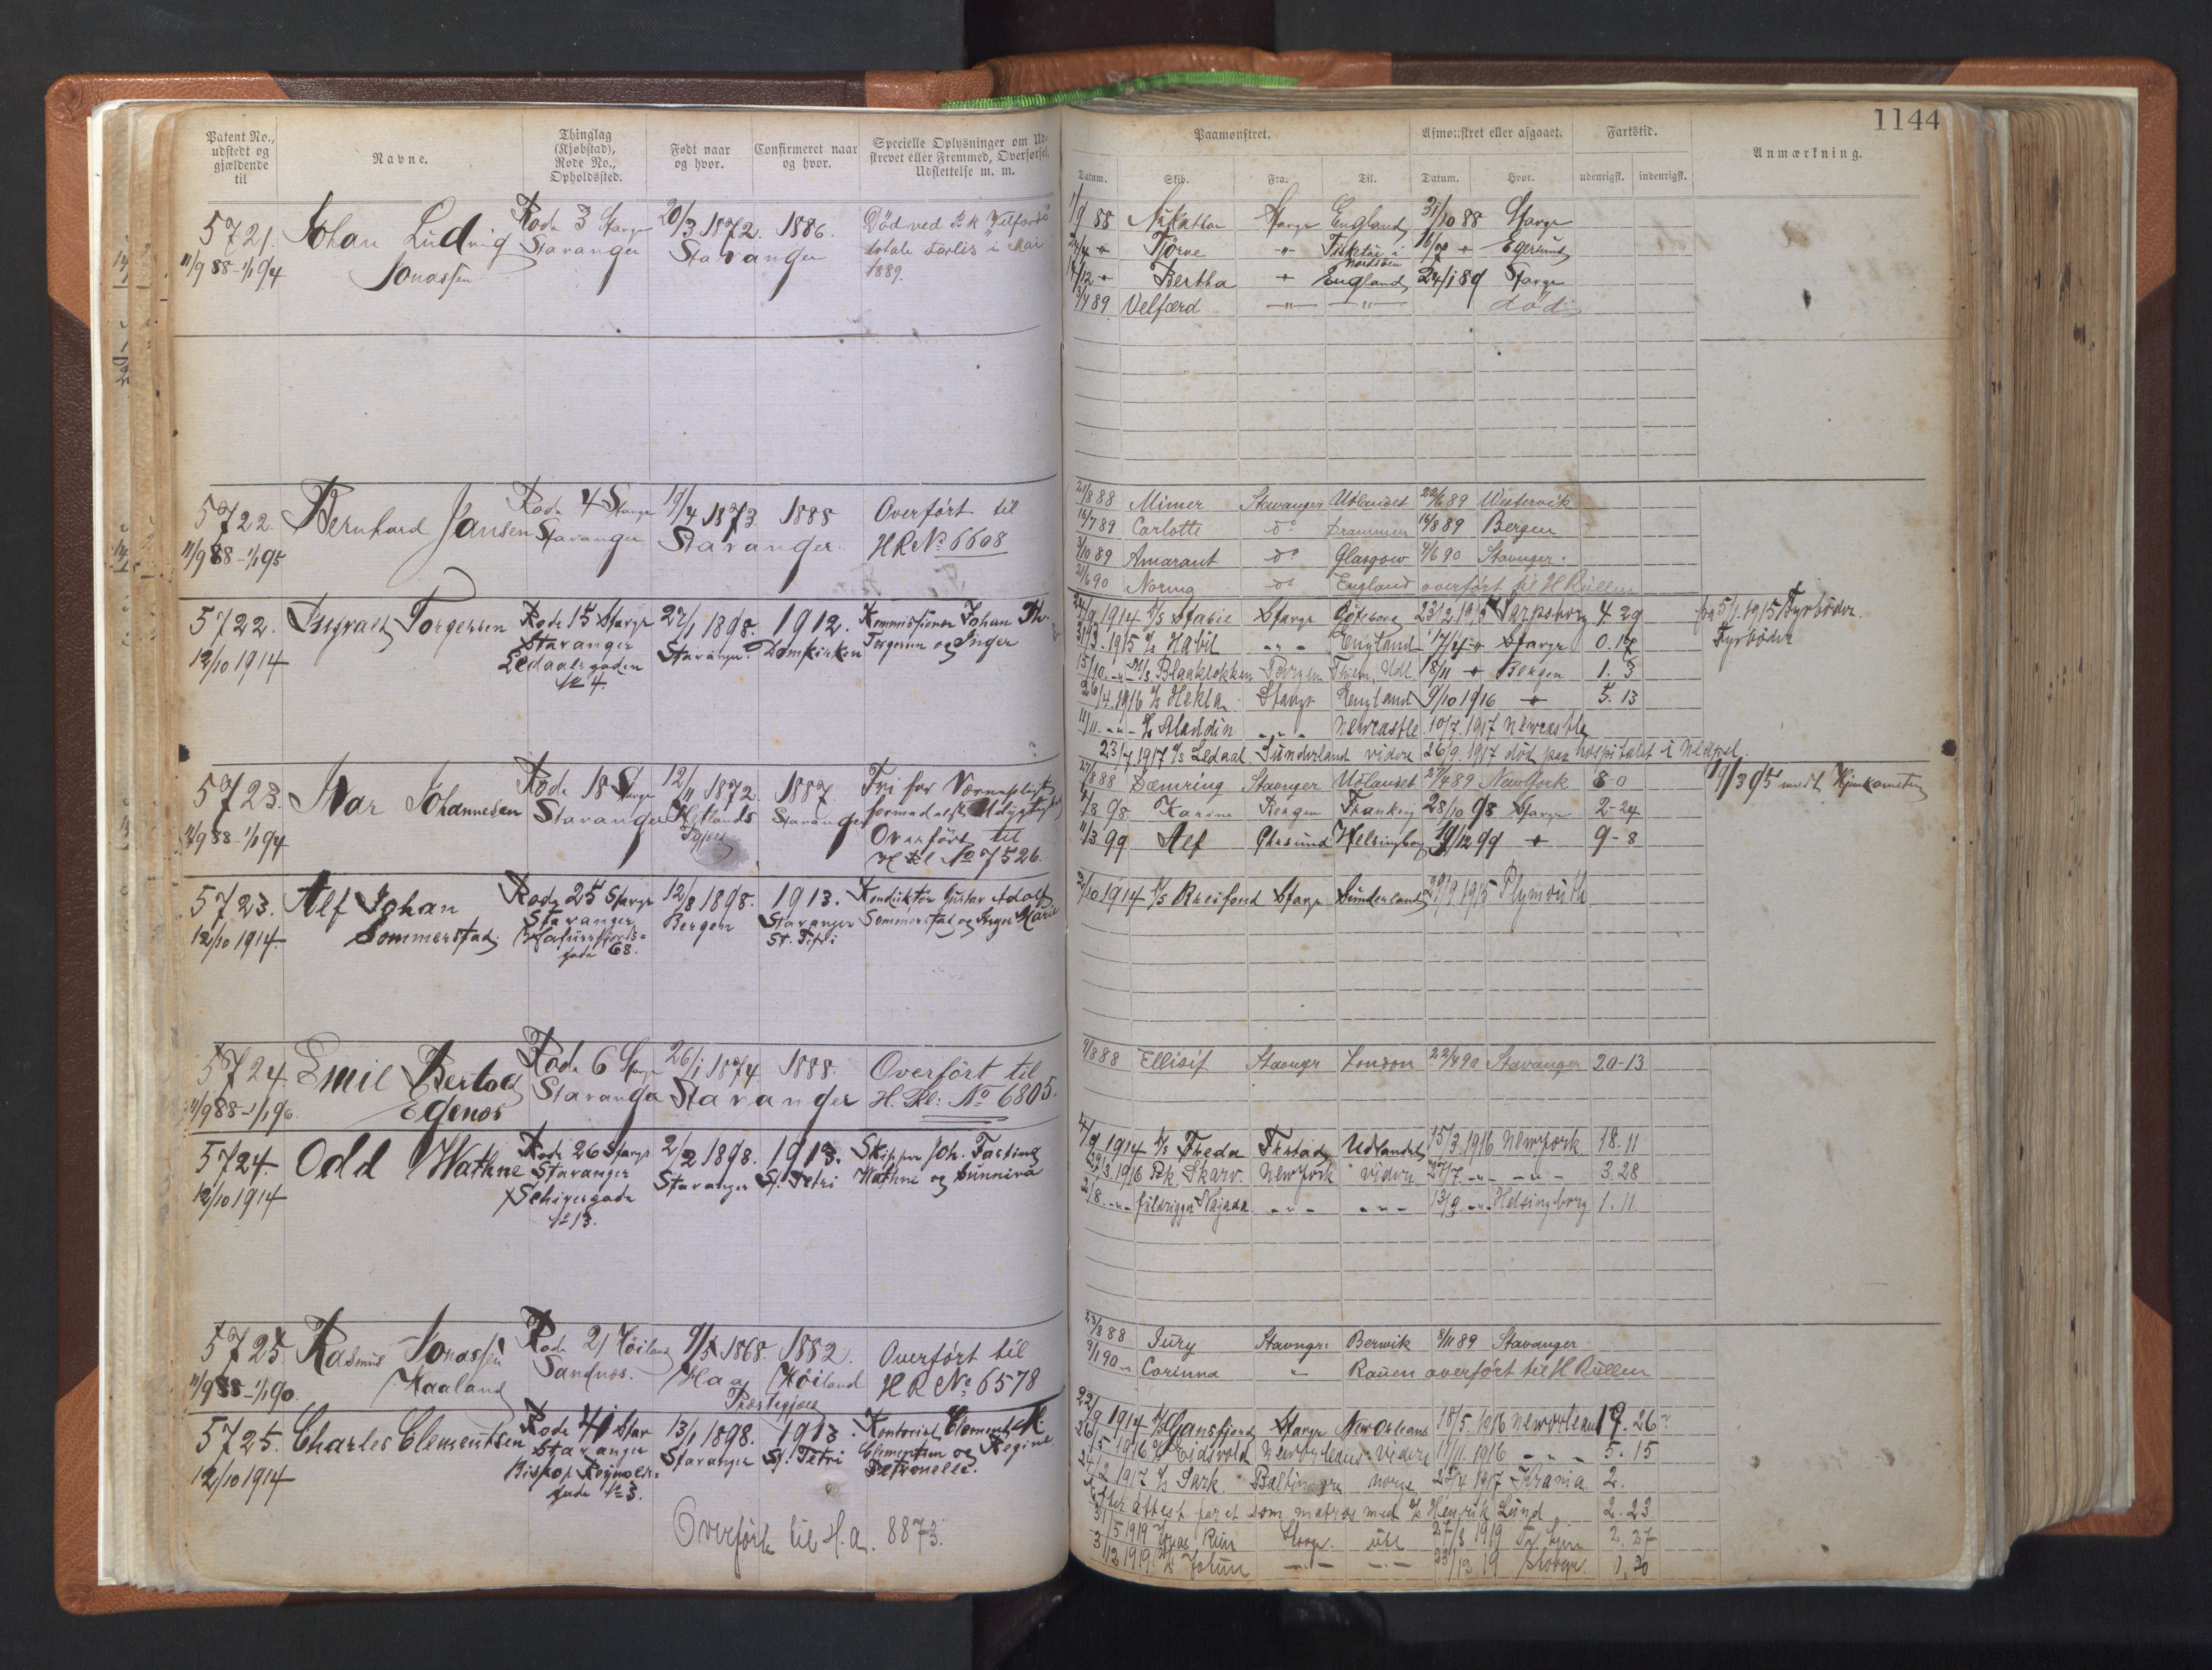 1144
Patent No., udstedt og gjældende til
Navne.
Thinglag (Kjøbstad), Rode No., Opholdssted.
Født naar og hvor.
Confirmeret naar og hvor.
Specielle Oplysninger om Udstrevet eller Fremmed, Overførsel, Udslettelse m. m.
Paamønstret.
Afmønstret eller afgaaet.
Fartstid.
Anmærkning.
Datum. Skib. Fra. Til. Datum. Hvor. udenrigsk. indenrigsk.
5721. Johan Ludvig Rode 3 Stavgr 20/3 1872. 1886. Død ved
11/9 88-1/1 94 Jonassen Stavanger Stavanger totale Forlis i Mai
1889.
11/9 88 Stavgr England 31/10 88 Stavgr
Tjörve Egersund
Bertha England 24/1 89 Stavgr
Velfærd død
5722. Bernhard Jansen Rode 4 Stavgr 19/4 1873 1888 Overført til
11/9 88-1/1 95 Stavanger Stavanger. H R No 6608
21/8 88 Mimer Stavanger Udlandet 22/6 89 Westervik
16/7 89 Carlotte do Drammen 16/8 89 Bergen
3/10 89 Amarant do Glasgow 4/6 90 Stavnger.
21/6 90 Norma do England overført til H Rullen
5722. Torgersen Rode 15 Stavgr 27/1 1898. 1912. Johan Th.
12/10 1914 Stavanger Stavanger. Domkirken Torgersen og Inger
Ledaalsgaden
No 4.
24/9 1914 Stavgr Göteborg 23/2 1915 Sarpsborg 4. 29 fra 5/1. 1915 Fyrbøder.
31/3. 1915 England 17/4 Stavgr 0. 17 Fyrbøder
15/10. Blaaklokken Bergen Udl. 18/11 Bergen 1. 3
26/4. 1916 Hekla Stavgr England 9/10 1916 5. 13
11/11. Aladdin Newcastle 10/7. 1917 Newcastle
23/7 1917 Ledaal Sunderland videre 26/9. 1917 død paa hospitalet i
5723. Ivar Johannesen Rode 18 Stavgr 12/11 1872. 1887. Fri for Værnepligt
12/9 88-1/1 94 Stavanger Hetlands Stavanger formedelst Udygtighed
Overført til
No 7526.
27/8 88 Dæmring Stavanger Udlandet 27/4 89 NewYork 8 0
4/8 98 Karine Bergen 28/10 98 Stavgr 2-24
11/3 99 Alf Helsingborg 19/12 99 9-8
5723. Alf Johan Rode 25 Stavgr 12/8 1898. 1913. Konduktør Gustav Adolf
12/10 1914. Sommerstad. Stavanger Bergen Stavanger Sommerstad og Inger Marie
gade 68. St. Petri
2/10 1914 Stavgr Sunderland 29/9. 1915 Plymouth
5724 Emil Bertog Rode 6 Stavgr 26/1 1874 1888. Overført til
11/9 88-1/1 96. Egenos Stavanger Stavanger H. Rl: No 6805.
9/8 88 Ellisif Stavngr London 22/4 90 Stavanger 20-13
5724. Odd Wathne Rode 26 Stavgr 2/2 1898. 1913. Skipper Joh. Fasting
12/10 1914 Stavanger Stavanger St. Petri Wathne og Sunniva
No 13.
4/9 1914 Freda Udlandet 15/3. 1916 Newyork 18. 11
29/3 1916 Bk. Skarv. Newyork videre 27/7. 3. 28
2/8. fuldrigger Najada 13/9. Helsingborg 1. 11.
5725. Rasmus Jonassen Rode 21 Høiland 9/5 1868. 1882. Overført til
11/9 88-1/1 90. Haaland Sandnes. Haa Høiland H R No 6578
Præstegjæld
23/8 88 Jury Stavngr: Berwik 8/11 89 Stavanger
9/1 90 Corinna Rauen overført til H Rullen
5725. Charles Clementsen Rode 41 Stav 13/1 1898. 1913 Kontorist Clement M.
12/10 1914 Stavanger Stavanger St. Petri Clementsen og Regine
Biskop Reynolds= Petronelle.
gade No 3.
Overført til H. a. 8873.
22/9 1914 Gansfjord Stavgr New Orleans 18/5. 1916 Neworleans 19. 26
26/5 1916 Eidsvold Neworleans videre 11/11. 1916 5. 15
24/2 1917 Sark Baltimore norge 25/4 1917 Krania 2.
Efter attest faret som matros med Henrik Lund 2. 23.
31/5 1919 Stavgr. utl 27/8 1919 2. 27
3/12 1919 23/12 19 Stavgr. 0, 20